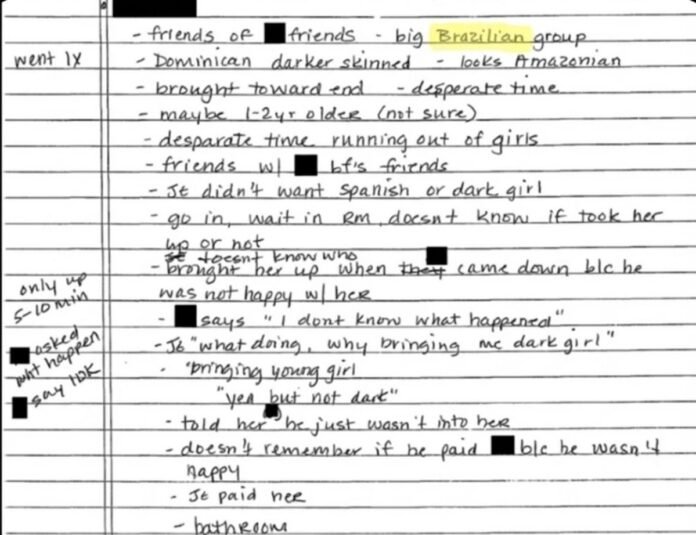 - friends of friends - big Brazilian group
went 1x
- Dominican darker skinned - looks Amazonian
- brought toward end - desperate time
- maybe 1-2yr older (not sure)
- desparate time running out of girls
- friends w/ bf's friends
- JE didn't want spanish or dark girl
- go in, wait in RM, doesnt know if took her
up or not
JE doesnt know who
- brought her up when they came down b/c he
was not happy w/ her
only up
5-10 min
- says "I dont know what happened"
asked
wht happen
say IDK
- JE "what doing, why bringing me dark girl"
- "bringing young girl
"yea but not dark"
- told her he just wasn't into her
- doesn't remember if he paid b/c he wasn't
happy
- JE paid her
- bathroom